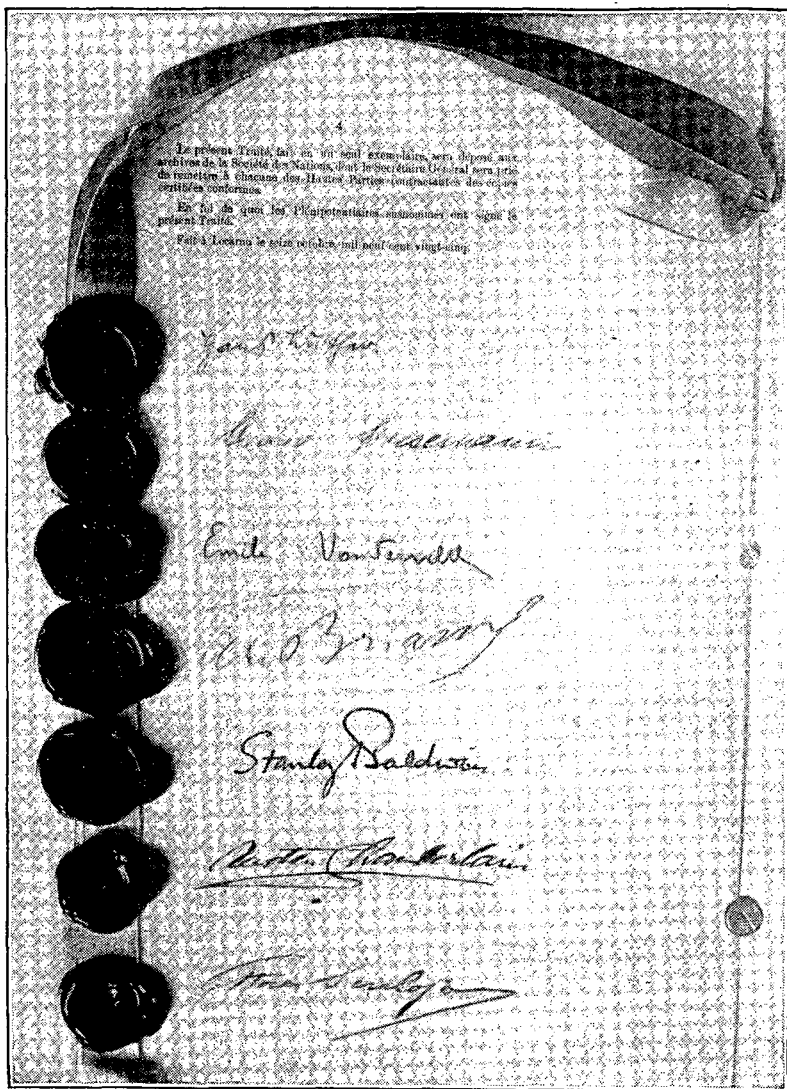 4
Le présent Traité, fait en un seul exemplaire, sera déposé aux
archives de la Société des Nations, dont le Secrétaire Général sera prié
de remettre à chacune des Hautes Parties contractantes des copies
certifiées conformes.
En foi de quoi les Plénipotentiaires susnommés ont signé le
présent Traité.
Fait à Locarno le seize octobre, mil neuf cent vingt-cinq.
Emile Vandervelde
Briand
Stanley Baldwin
Austen Chamberlain